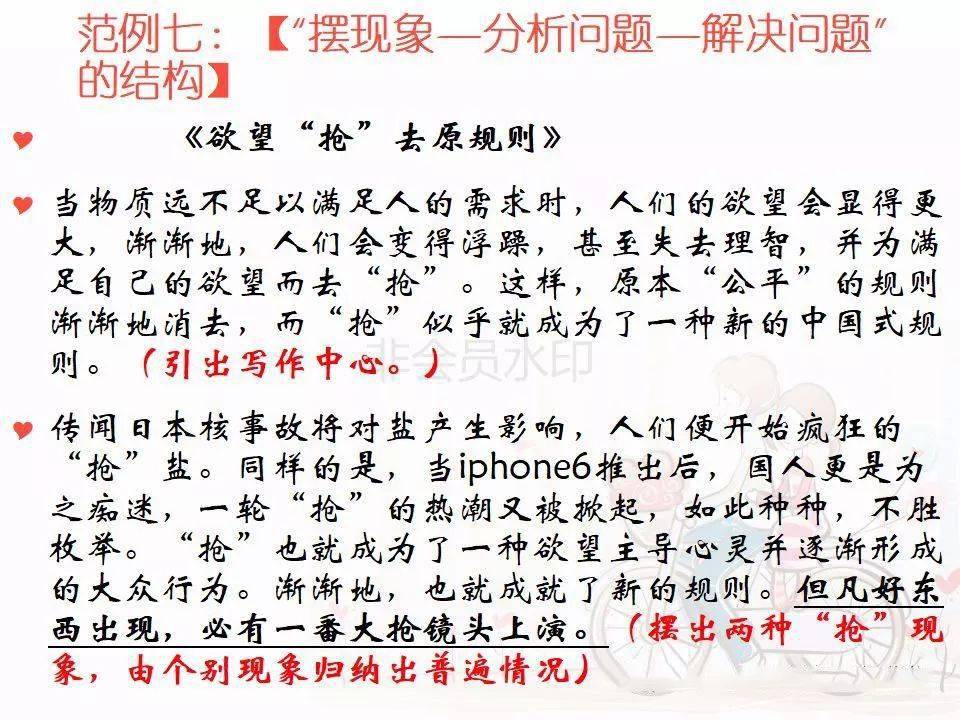 范例七：【“摆现象—分析问题—解决问题”
的结构】
《欲望“抢”去原规则》
当物质远不足以满足人的需求时，人们的欲望会显得更
大，渐渐地，人们会变得浮躁，甚至失去理智，并为满
足自己的欲望而去“抢”。这样，原本“公平”的规则
渐渐地消去，而“抢”似乎就成为了一种新的中国式规
则。（引出写作中心。）
非会员水印
传闻日本核事故将对盐产生影响，人们便开始疯狂的
“抢”盐。同样的是，当iphone6推出后，国人更是为
之痴迷，一轮“抢”的热潮又被掀起，如此种种，不胜
枚举。“抢”也就成为了一种欲望主导心灵并逐渐形成
的大众行为。渐渐地，也就成就了新的规则。但凡好东
西出现，必有一番大抢镜头上演。（摆出两种“抢”现
象，由个别现象归纳出普遍情况）